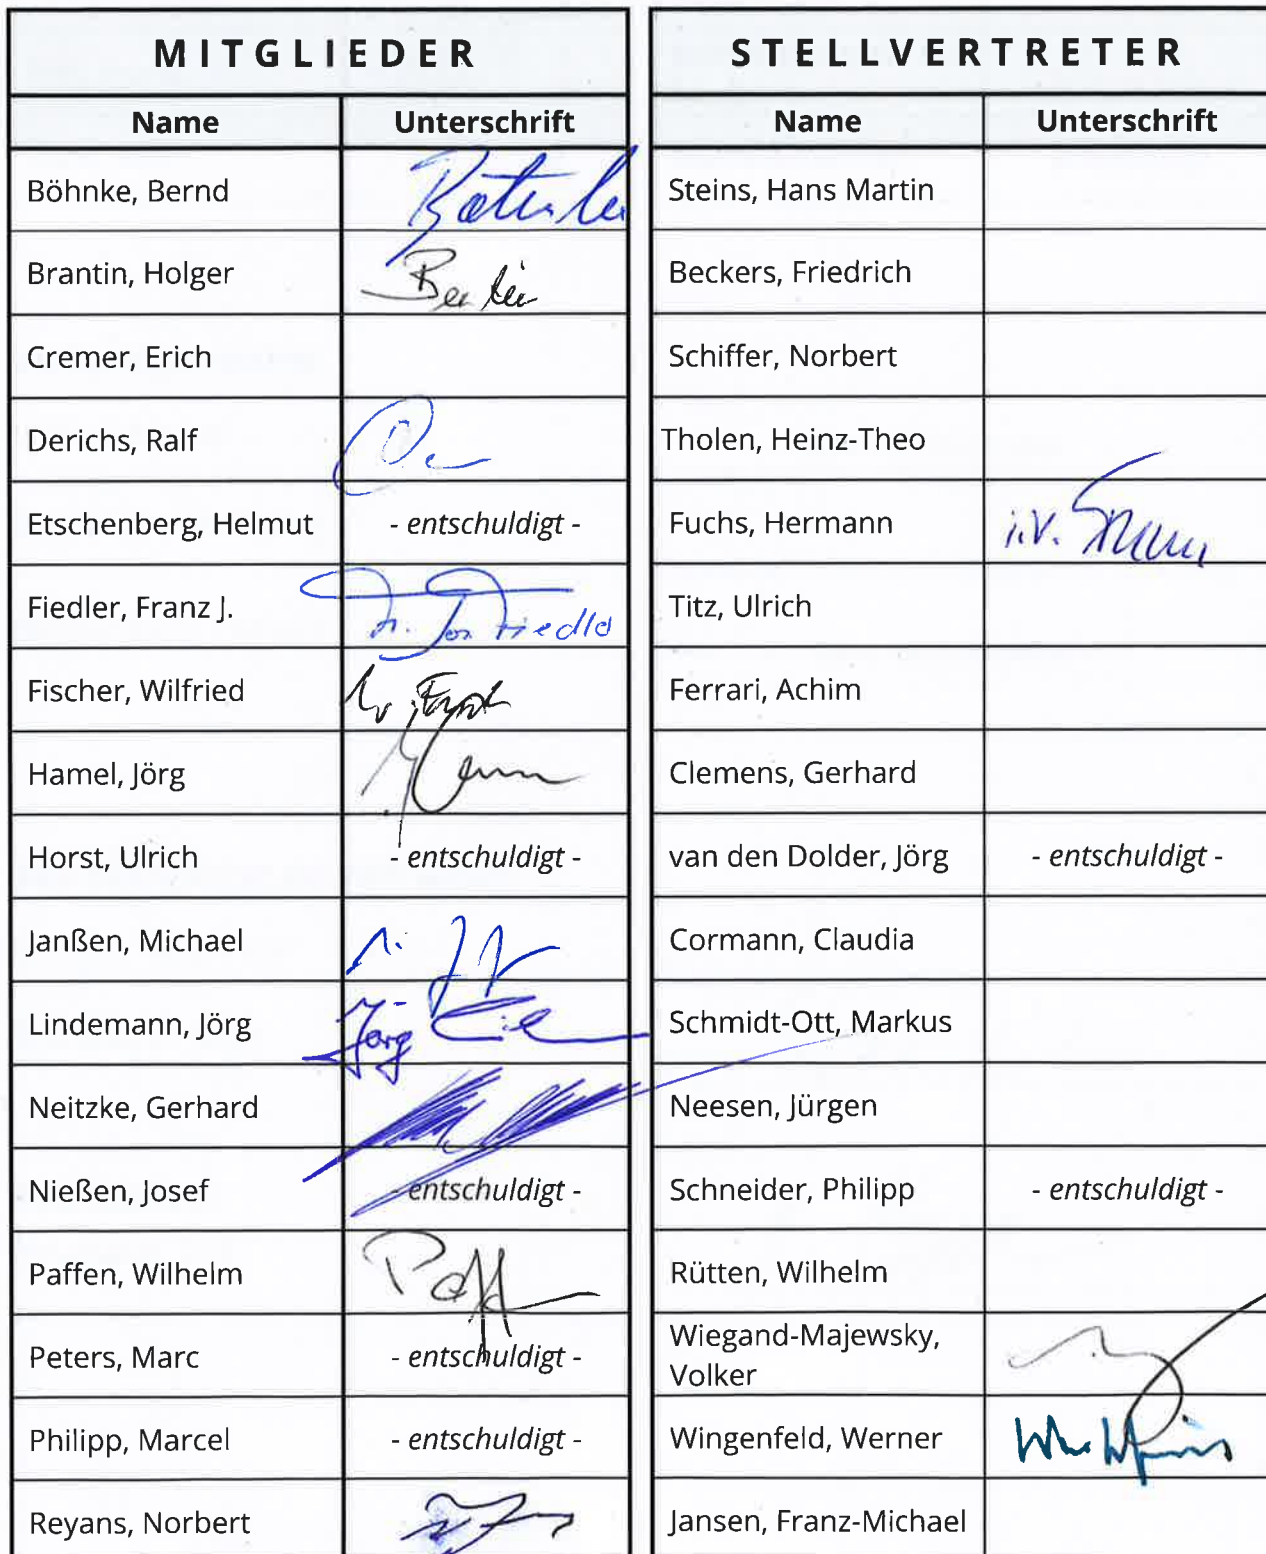 MITGLIEDER
Name Unterschrift
Böhnke, Bernd
Brantin, Holger
Cremer, Erich
Derichs, Ralf
Etschenberg, Helmut - entschuldigt -
Fiedler, Franz J.
Fischer, Wilfried
Hamel, Jörg
Horst, Ulrich - entschuldigt -
Janßen, Michael
Lindemann, Jörg Jörg
Neitzke, Gerhard
Nießen, Josef - entschuldigt -
Paffen, Wilhelm
Peters, Marc - entschuldigt -
Philipp, Marcel - entschuldigt -
Reyans, Norbert
STELLVERTRETER
Name Unterschrift
Steins, Hans Martin
Beckers, Friedrich
Schiffer, Norbert
Tholen, Heinz-Theo
Fuchs, Hermann i.V.
Titz, Ulrich
Ferrari, Achim
Clemens, Gerhard
van den Dolder, Jörg - entschuldigt -
Cormann, Claudia
Schmidt-Ott, Markus
Neesen, Jürgen
Schneider, Philipp - entschuldigt -
Rütten, Wilhelm
Wiegand-Majewsky,
Volker
Wingenfeld, Werner
Jansen, Franz-Michael